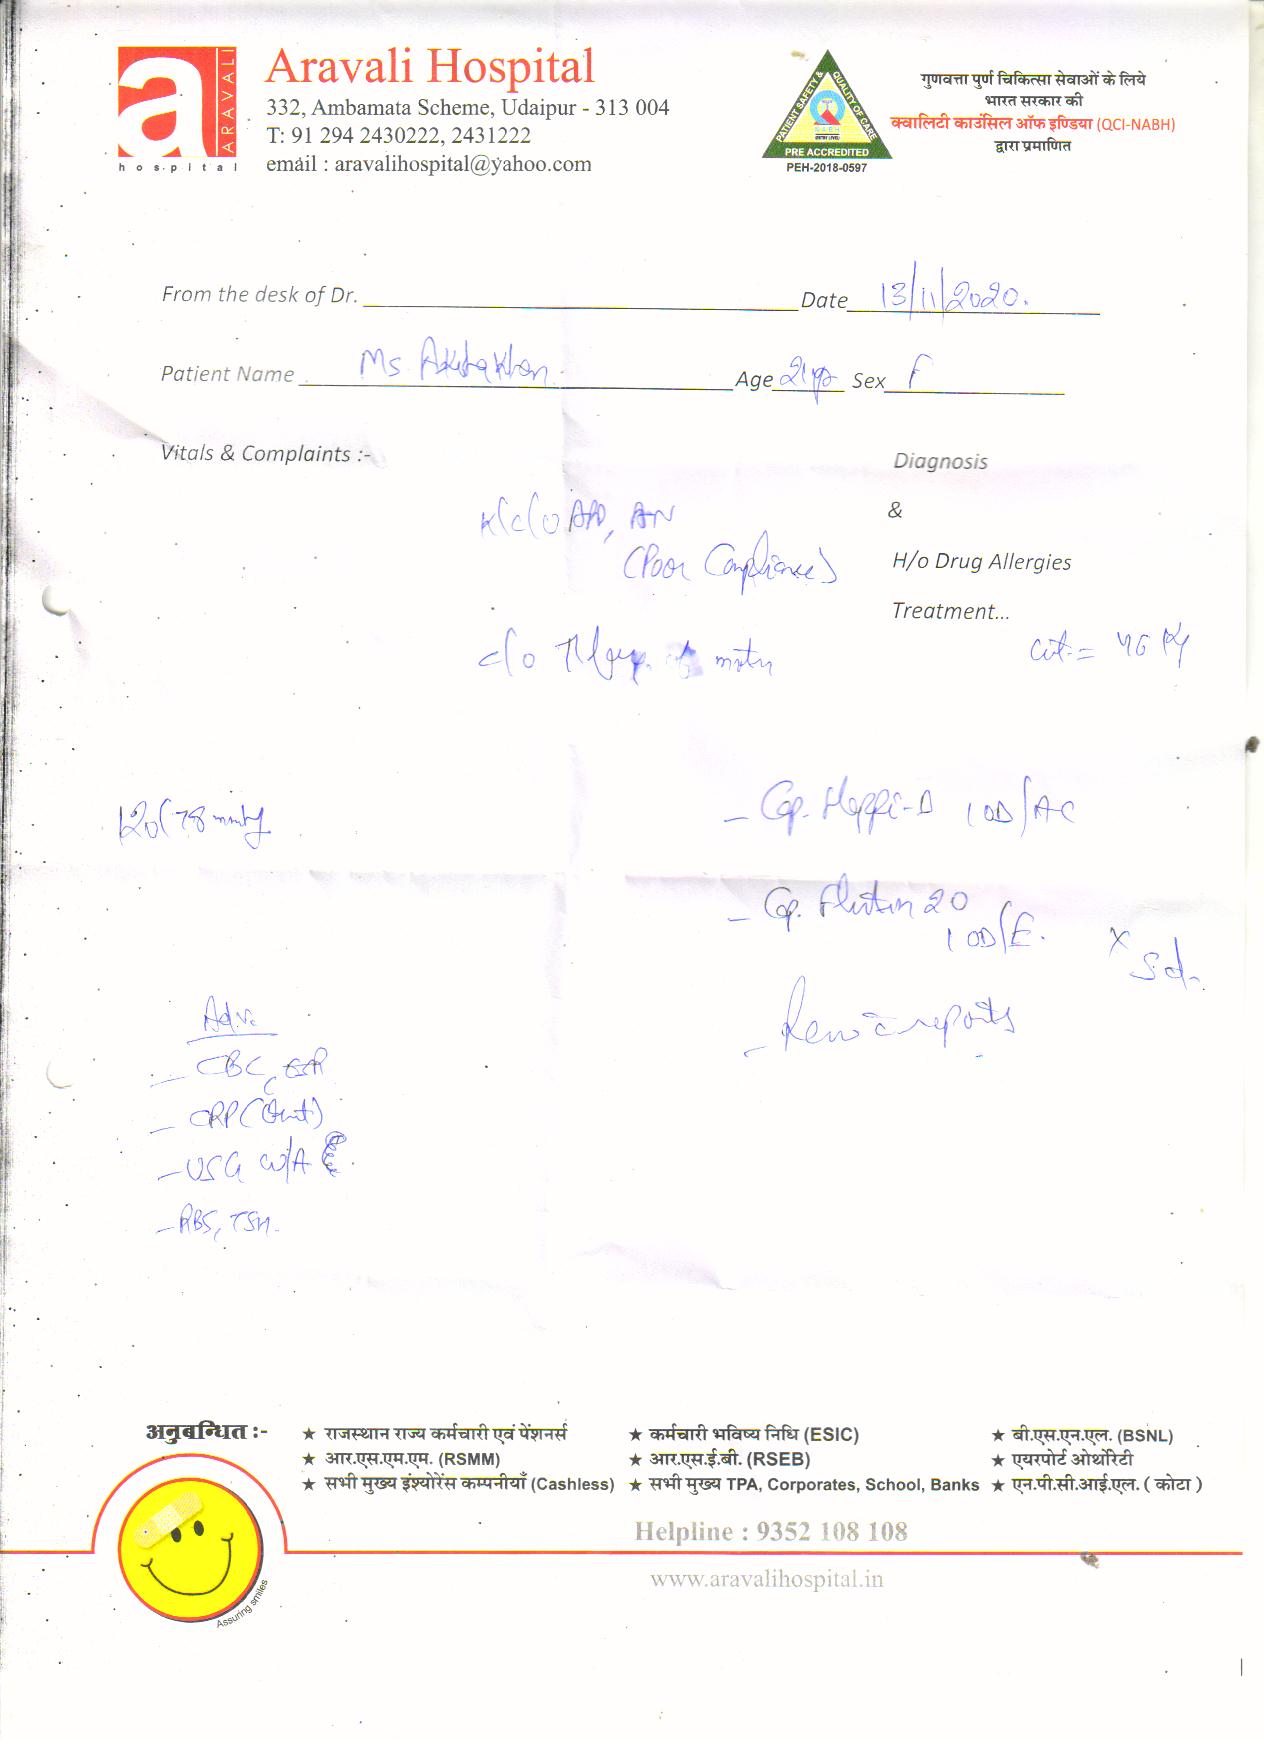 a ARAVALI
hospital
Aravali Hospital
332, Ambamata Scheme, Udaipur - 313 004
T: 91 294 2430222, 2431222
email : aravalihospital@yahoo.com
PATIENT SAFETY & QUALITY OF CARE
NABH
PRE ACCREDITED
PEH-2018-0597
गुणवत्ता पुर्ण चिकित्सा सेवाओं के लिये
भारत सरकार की
क्वालिटी काउंसिल ऑफ इण्डिया (QCI-NABH)
द्वारा प्रमाणित
From the desk of Dr. Date 13/11/2020.
Patient Name Ms Khan Age 21 Sex F
Vitals & Complaints :-
Diagnosis
&
H/o Drug Allergies
Treatment...
K/C/O AN
(Poor Compliance)
C/o
wt. = 46 Kg
120/78 mmHg
- Cap. Happi-D 1 OD/AC
- Cap. 20
1 OD/E. x 5d.
- Review c reports
Adv.
- CBC, ESR
- CRP (Quant)
- USG W/A
- RBS, TSH.
अनुबन्धित :-
★ राजस्थान राज्य कर्मचारी एवं पेंशनर्स ★ कर्मचारी भविष्य निधि (ESIC) ★ बी.एस.एन.एल. (BSNL)
★ आर.एस.एम.एम. (RSMM) ★ आर.एस.ई.बी. (RSEB) ★ एयरपोर्ट ओथोरिटी
★ सभी मुख्य इंश्योरेंस कम्पनीयाँ (Cashless) ★ सभी मुख्य TPA, Corporates, School, Banks ★ एन.पी.सी.आई.एल. ( कोटा )
Helpline : 9352 108 108
www.aravalihospital.in
Assuring smiles